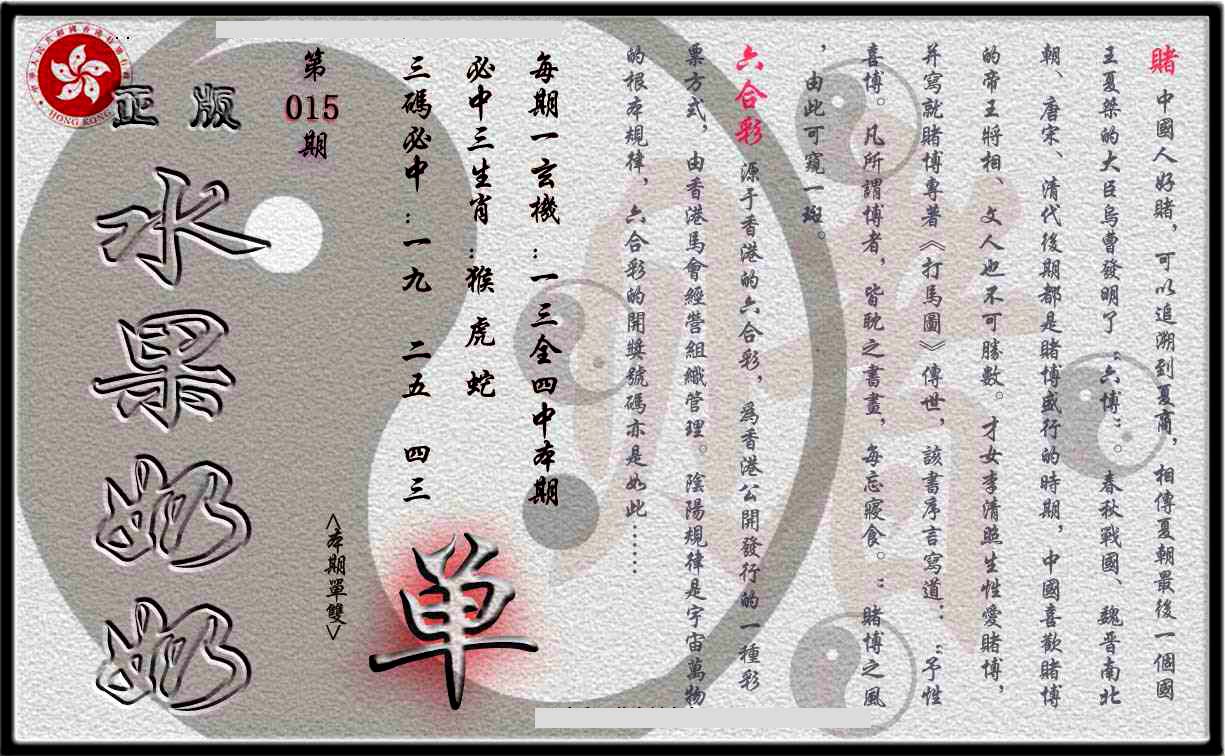 賭 中國人好賭，可以追溯到夏商，相傳夏朝最後一個國
王夏桀的大臣烏曹發明了“六博”。春秋戰國、魏晋南北
朝、唐宋、清代後期都是賭博盛行的時期，中國喜歡賭博
的帝王將相、文人也不可勝數。才女李清照生性愛賭博，
并寫就賭博專著《打馬圖》傳世，該書序言寫道：“予性
喜博。凡所謂博者，皆耽之書畫，每忘寢食。”賭博之風
，由此可窺一斑。
六合彩 源于香港的六合彩，爲香港公開發行的一種彩
票方式，由香港馬會經營組織管理。陰陽規律是宇宙萬物
的根本規律，六合彩的開獎號碼亦是如此……
每期一玄機：一三全四中本期
必中三生肖：猴 虎 蛇
三碼必中：一九 二五 四三
单
第
015
期
<本期單雙>
正版
水果奶奶
HONG KONG